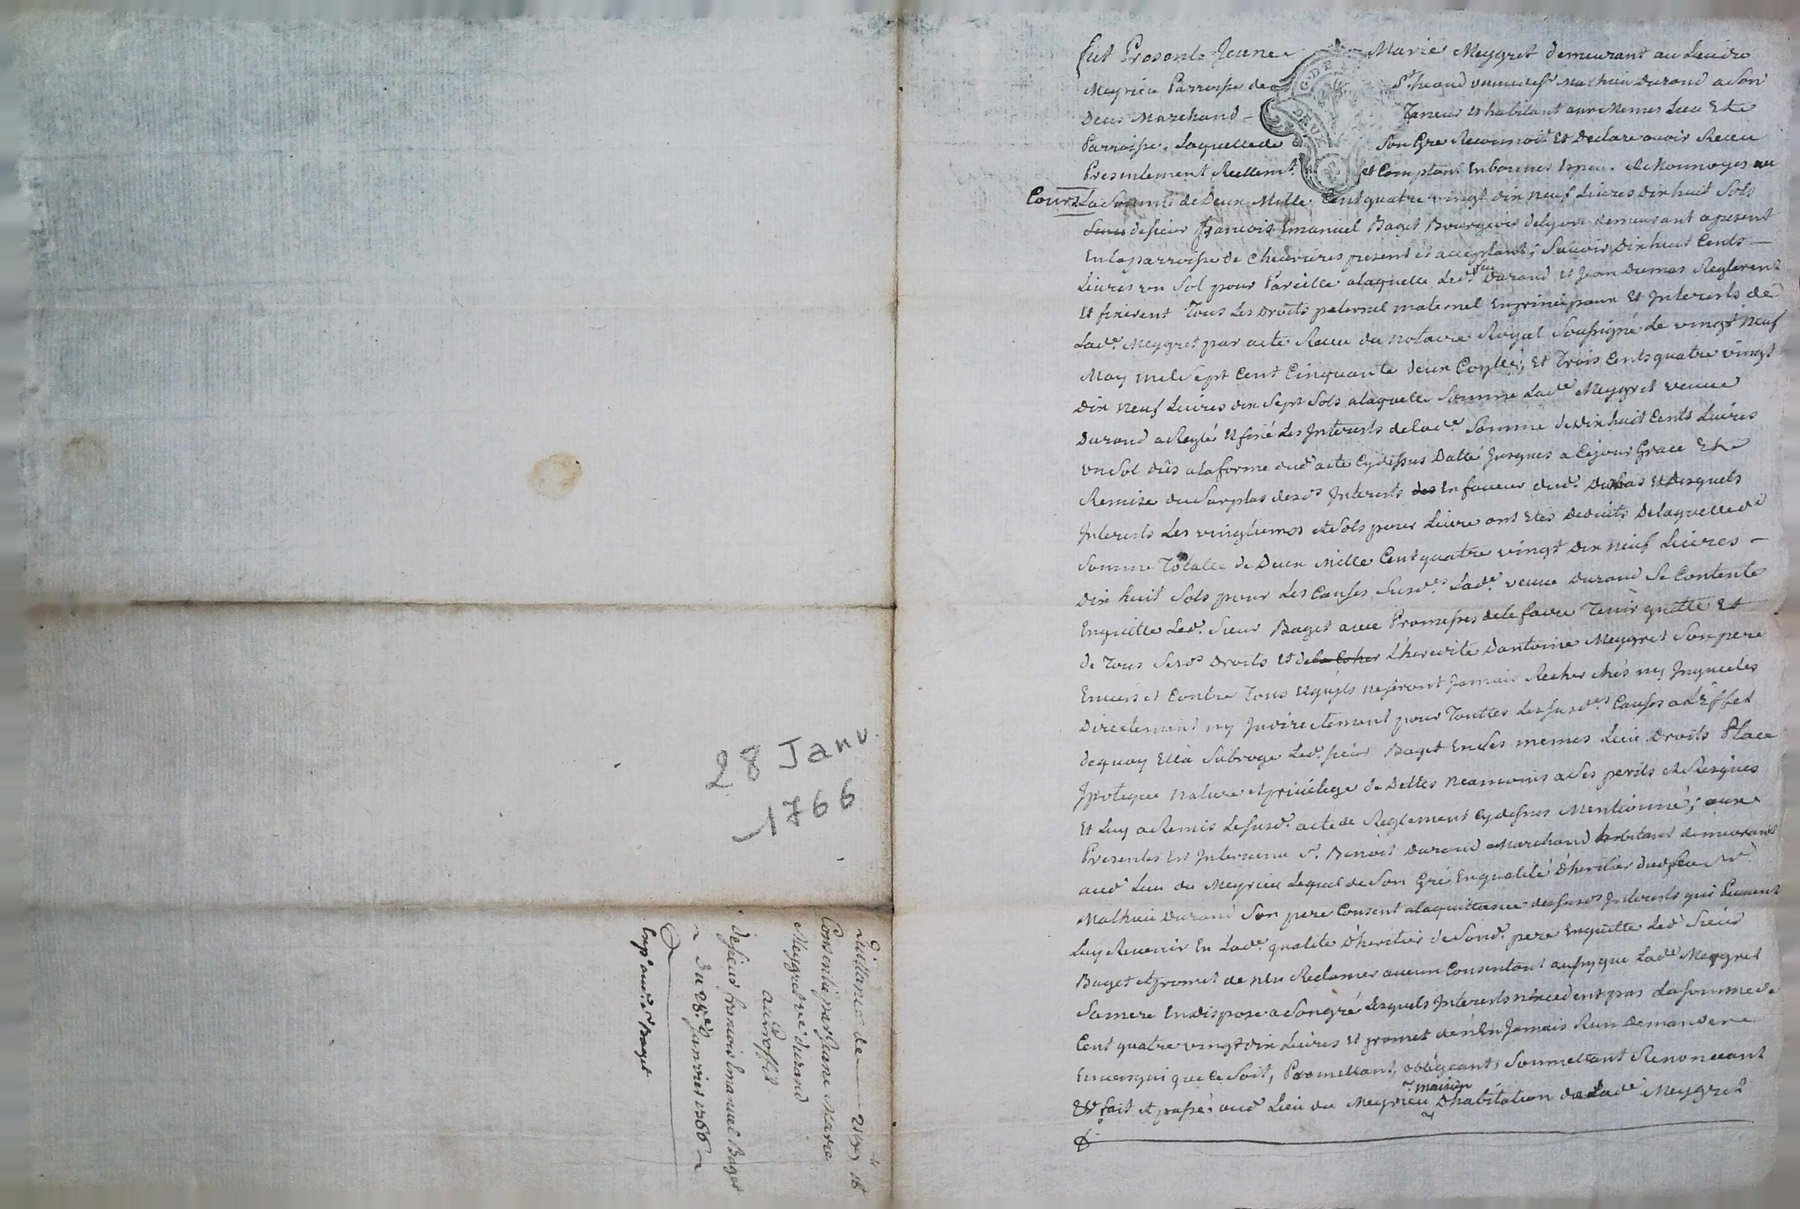 fut Presente Jeane Marie Meygret demeurant au Lieu de
Meyrieu Parroisse de St heand veuve de Sr Mathieu Durand a Son
Deces Marchand Taneur et habitant aux Memes Lieu Et
Parroisse. Laquelle de Son Gre Reconnoit Et Declare avoir Receu
Presentement Reellemt. et Comptant En bonnes Espec. et Monnoyes au
Cours La Somme de Deux Mille Cent quatre vingt dix neuf Livres dix huit Sols
de sieur francois Emanuel Baget Bourgeois de Lyon demeurant a present
En la parroisse de Chevrieres present et acceptant; Savoir Dix huit Cents
Livres un Sol pour Pareille a laquelle Led. feu Durand et Jean Dumas Reglerent
Et fixerent Tous Les Droits paternel maternel En principaux Et Interests de
Lade. Meygret par acte Receu du Notaire Royal Soussigné Le vingt Neuf
May mil Sept Cent Cinquante deux Conllé; Et Trois Cents quatre vingt
dix Neuf Livres dix Sept Sols a laquelle Somme Lade Meygret veuve
Durand a Reglé Et fixé Les Interests de lade. Somme de dix huit Cents Livres
un Sol dûs a la forme dud acte Cy dessus Datté Jusques a Ce jour Grace Et
Remise du Surplus desds Interests des En faveur dud. Et Desquels
Interests Les vingtiemes et Sols pour Livre ont Etés Deduits De laquelle de
Somme Totalle de Deux Mille Cent quatre vingt Dix Neuf Livres
dix huit Sols pour Les Causes Susdes. Lade. veuve Durand Se Contente
En quitte Led. Sieur Baget avec Promesses de le faire Tenir quitte Et
de Tous Sesds Droits et de L'heredité d'antoine Meygret Son pere
Envers et Contre Tous Et qu'ils ne feront Jamais Recherchés ny Inquietes
Directement ny Indirectement pour Touttes Les susdes Causes a L'Effet
de quoy Ella Subroge Led. sieur Baget En Ses memes Lieu Droits Place
Ipoteque Nature et privilege de Dettes Neamoins a Ses perils et Risques
Et Luy a Remis Le susd. acte de Reglement Cy dessus Mentionné; aux
Presentes Est Intervenu Sr. Benoit Durand Marchand habitant demeurant
aud Lieu du Meyrieu Lequel de Son Gré En qualité D'heritier dud feu Sr
Mathieu Durand Son pere Consent a la quittance desd susds Interests qui Peuvent
Luy Revenir En Lade. qualité D'heritier de Sond. pere En quitte Led Sieur
Baget et promet de n'En Reclamer aucun Consentant aussy que Lade Meygret
Sa mere En dispose a Son gré Lesquels Interests n'Excedent pas La Somme de
Cent quatre vingt dix Livres Et promet de n'En Jamais Rien Demander
Envers qui que Ce Soit, Promettant, obligeant, Soumettant Renonceant
Et fait et passé aud Lieu du Meyrieu maison D'habitation de Lade Meygret
28 Janv
1766
Quittance de 2199 18
Consentie par Jeane Marie
Meygret ve durand
au Proffit
de sieur francois Emanuel Baget
Du 28e Janvier 1766
Expe aud. Sr Baget